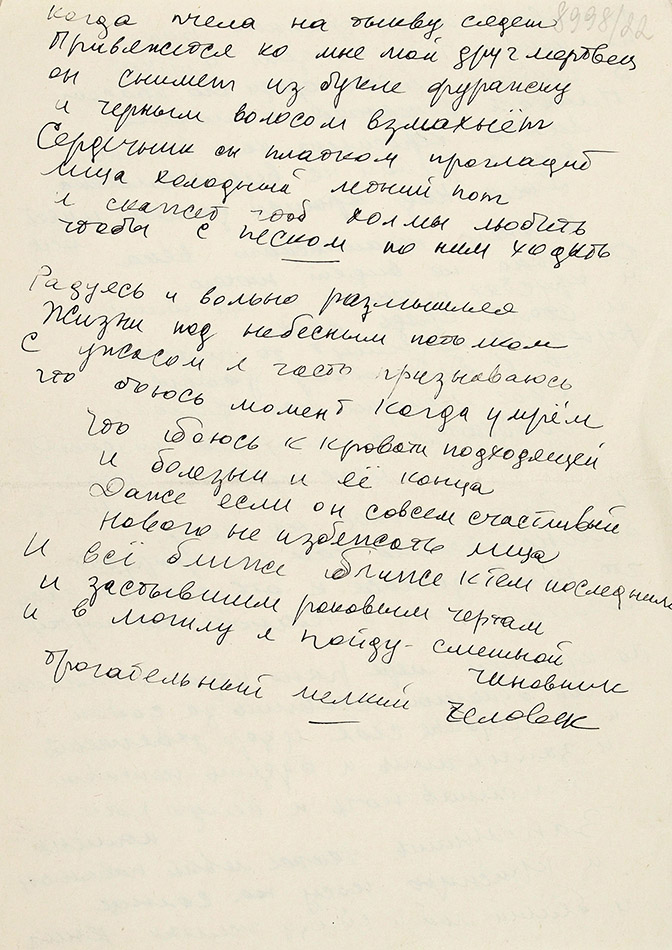 8998/22
Когда пчела на тыкву сядет
Привяжется ко мне мой друг мертвец
он снимет из букле фуражку
и черным волосом взмахнёт
Сердечник он платком прогладит
лица холодный летний пот
и скажет чтоб холмы любить
чтобы с песком по ним ходить
Радуясь и вольно размышляя
Жизни под небесным потолком
С ужасом я часто признаваюсь
что боюсь момент когда умрём
что боюсь к кровати подходящей
и болезни и её конца
Даже если он совсем счастливый
нового не избежать лица
И всё ближе ближе к тем последним
и застывшим роковым чертам
и в могилу я пойду - смешной
чиновник
трогательный мелкий человек